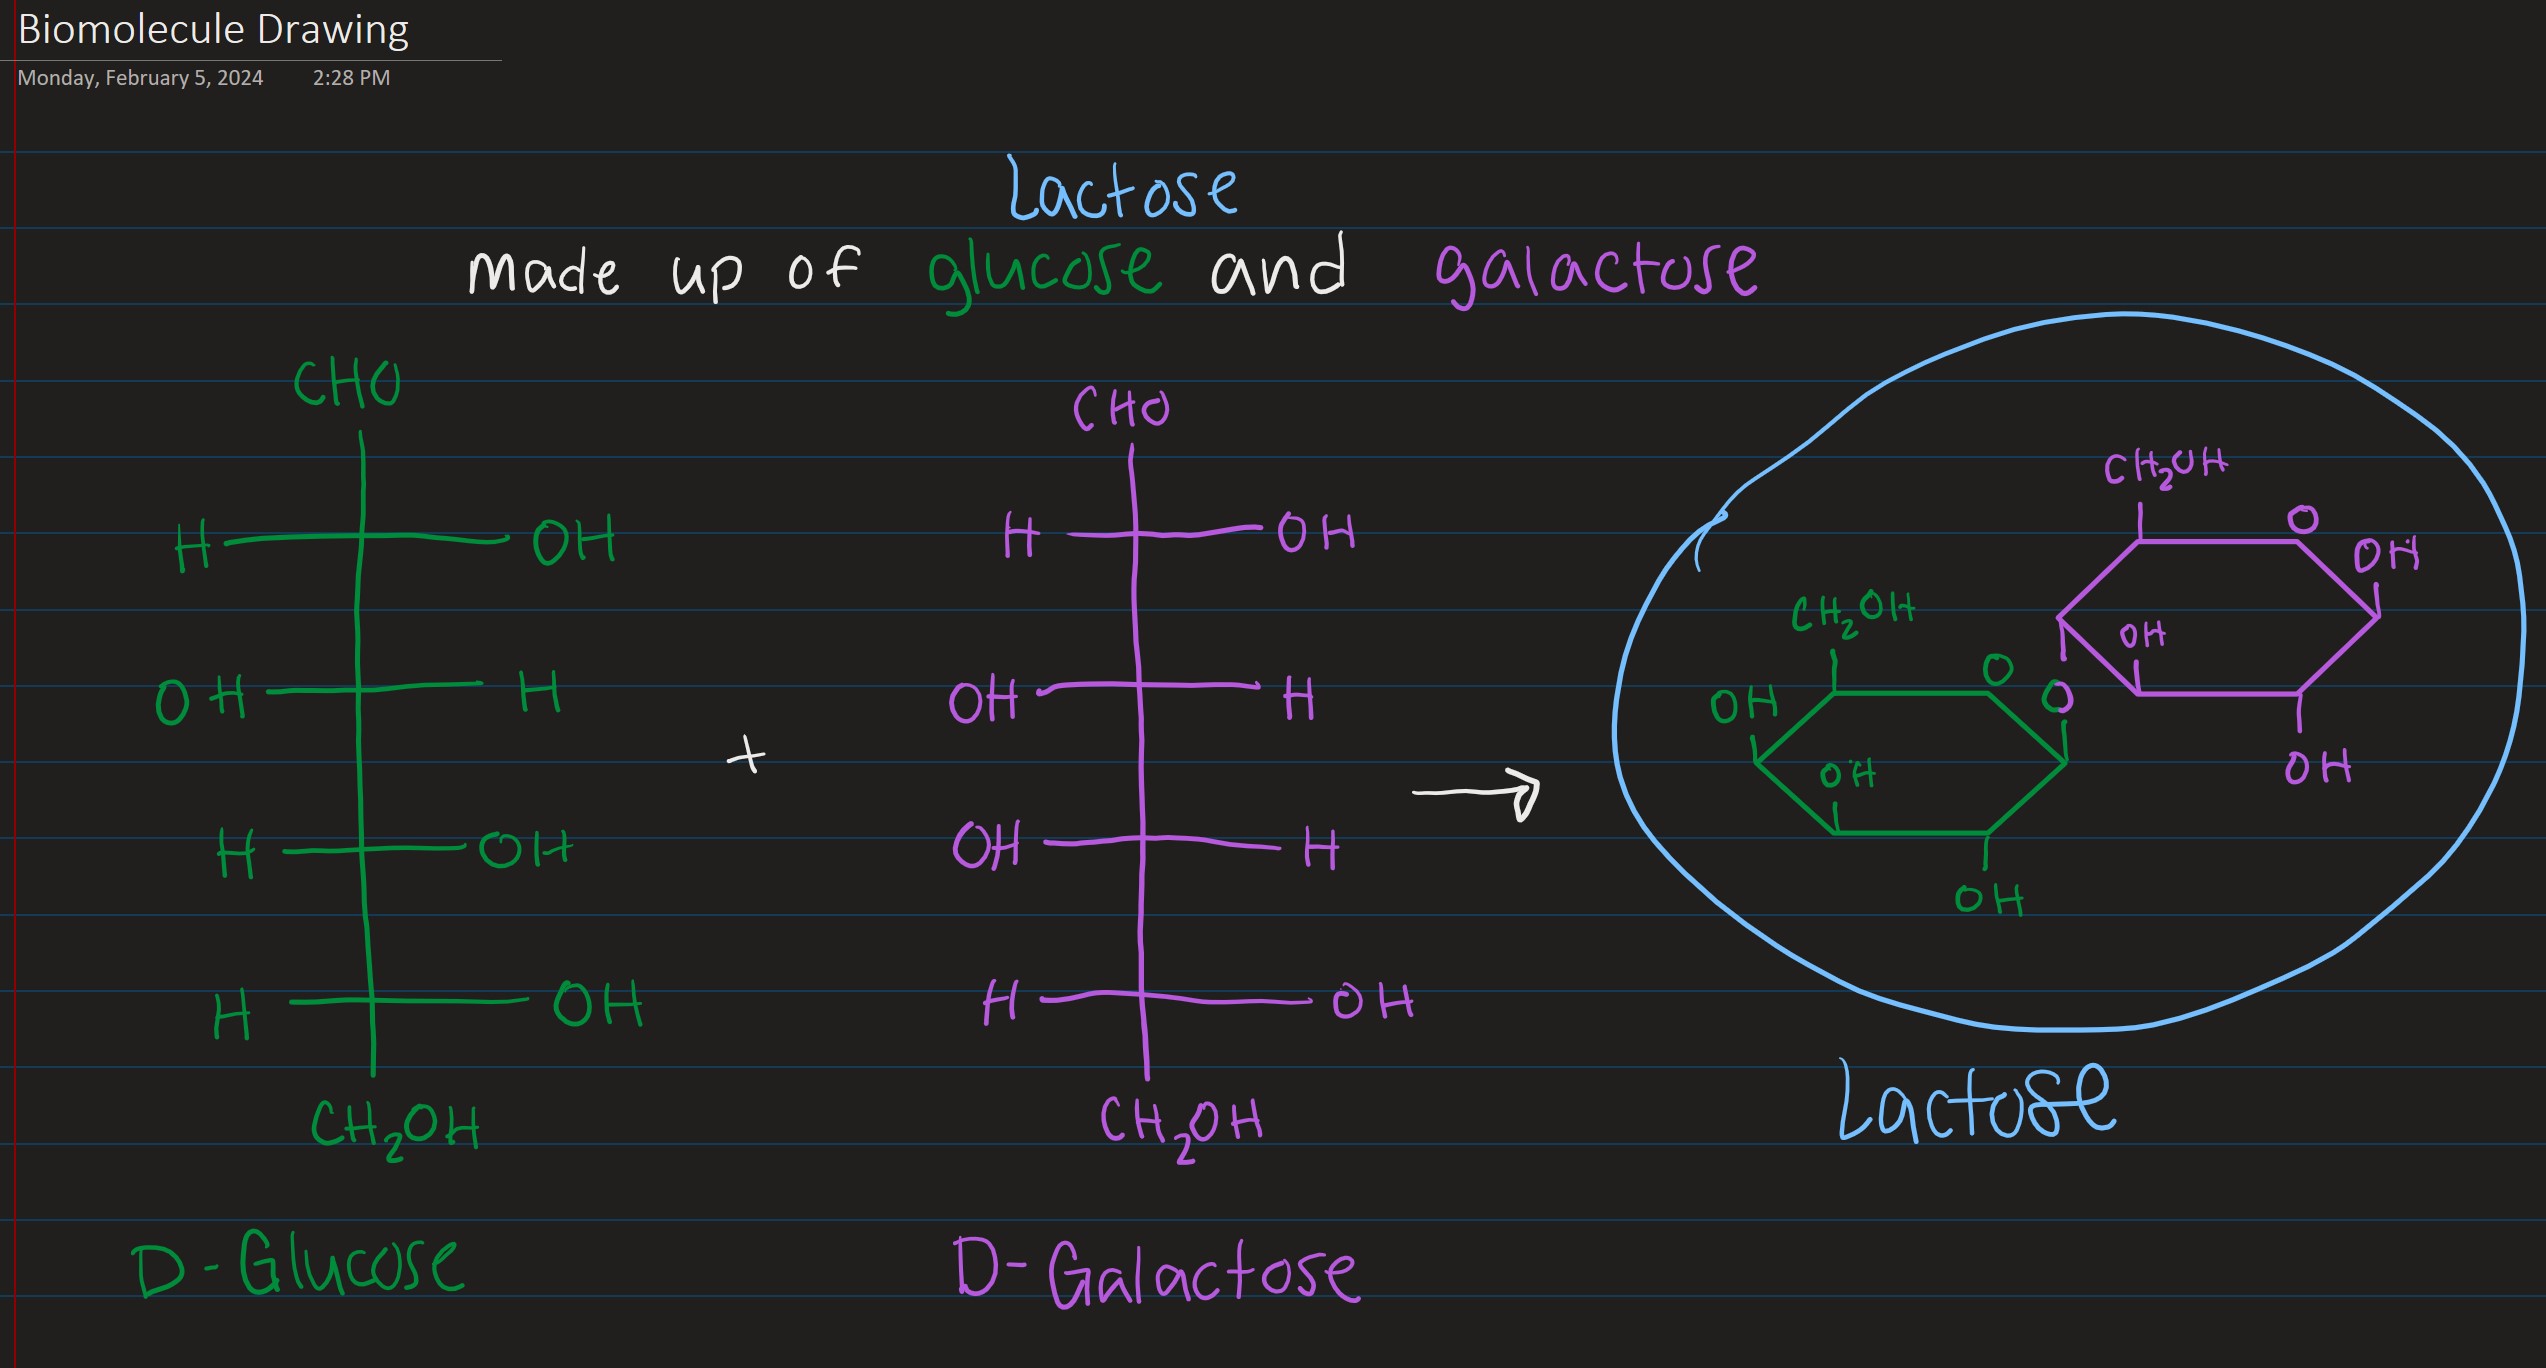 Biomolecule Drawing
Monday, February 5, 2024 2:28 PM
Lactose
made up of glucose and galactose
CHO
H OH
OH H
H OH
H OH
CH2OH
D-Glucose
+
CHO
H OH
OH H
OH H
H OH
CH2OH
D-Galactose
CH2OH
O
OH
OH
OH
O
CH2OH
O
OH
OH
OH
Lactose